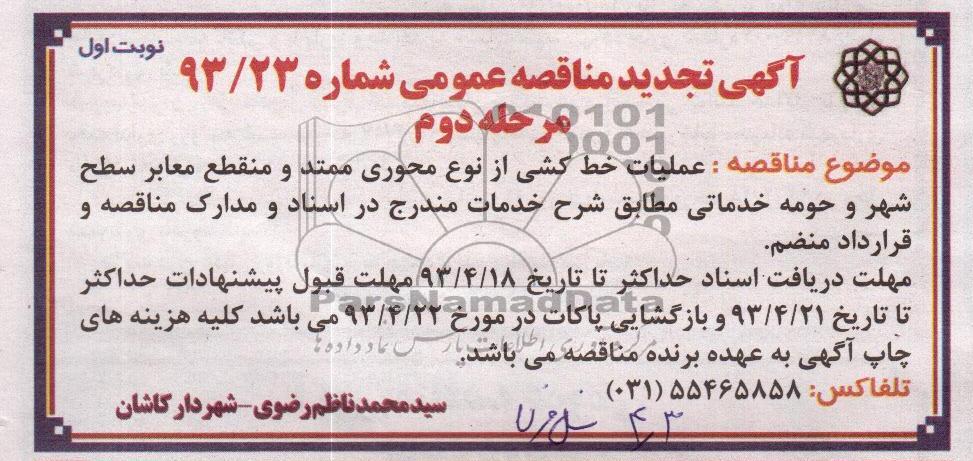 نوبت اول
آگهی تجدید مناقصه عمومی شماره ۹۳/۲۳
مرحله دوم
موضوع مناقصه : عملیات خط کشی از نوع محوری ممتد و منقطع معابر سطح
شهر و حومه خدماتی مطابق شرح خدمات مندرج در اسناد و مدارک مناقصه و
قرارداد منضم.
مهلت دریافت اسناد حداکثر تا تاریخ ۹۳/۴/۱۸ مهلت قبول پیشنهادات حداکثر
تا تاریخ ۹۳/۴/۲۱ و بازگشایی پاکات در مورخ ۹۳/۴/۲۲ می باشد کلیه هزینه های
چاپ آگهی به عهده برنده مناقصه می باشد.
تلفاکس: ۵۵۴۶۵۸۵۸ (۰۳۱)
سیدمحمدناظم رضوی-شهردار کاشان
ParsNamadData